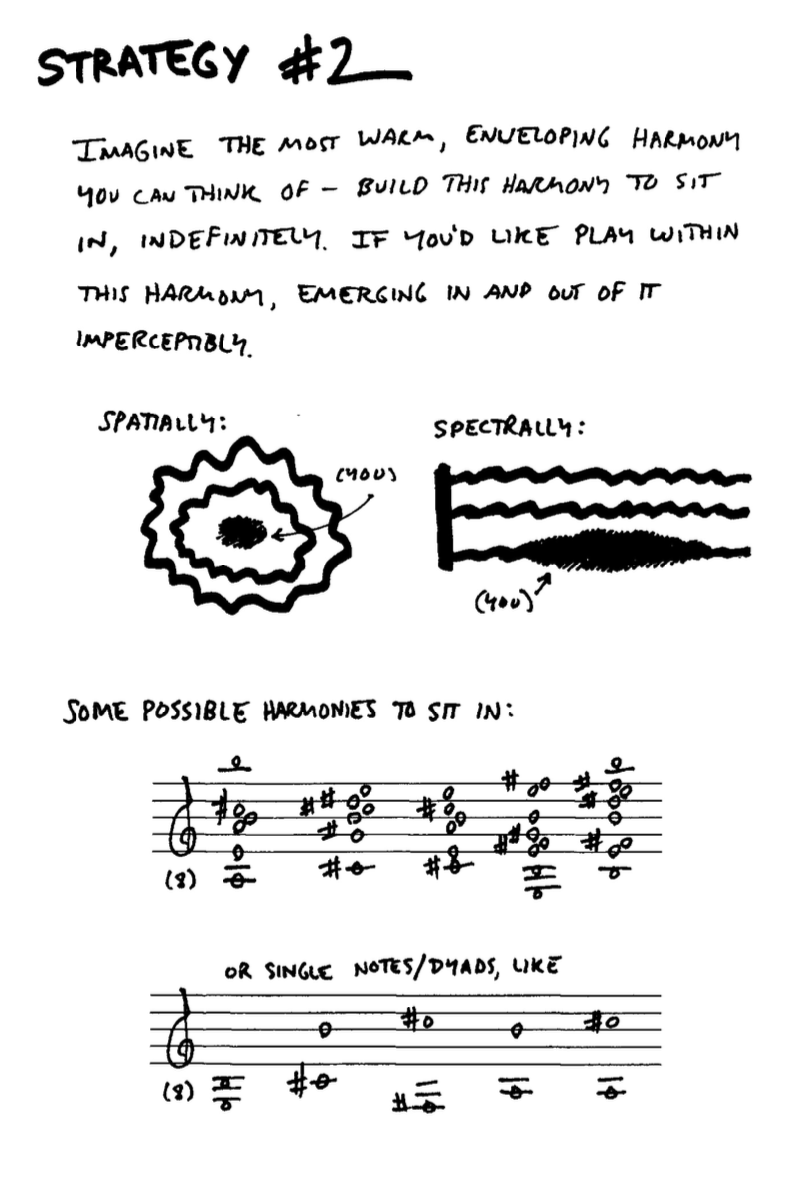 STRATEGY #2
IMAGINE THE MOST WARM, ENVELOPING HARMONY
YOU CAN THINK OF – BUILD THIS HARMONY TO SIT
IN, INDEFINITELY. IF YOU'D LIKE PLAY WITHIN
THIS HARMONY, EMERGING IN AND OUT OF IT
IMPERCEPTIBLY.
SPATIALLY:
(YOU)
SPECTRALLY:
(YOU)
SOME POSSIBLE HARMONIES TO SIT IN:
(8)
OR SINGLE NOTES/DYADS, LIKE
(8)